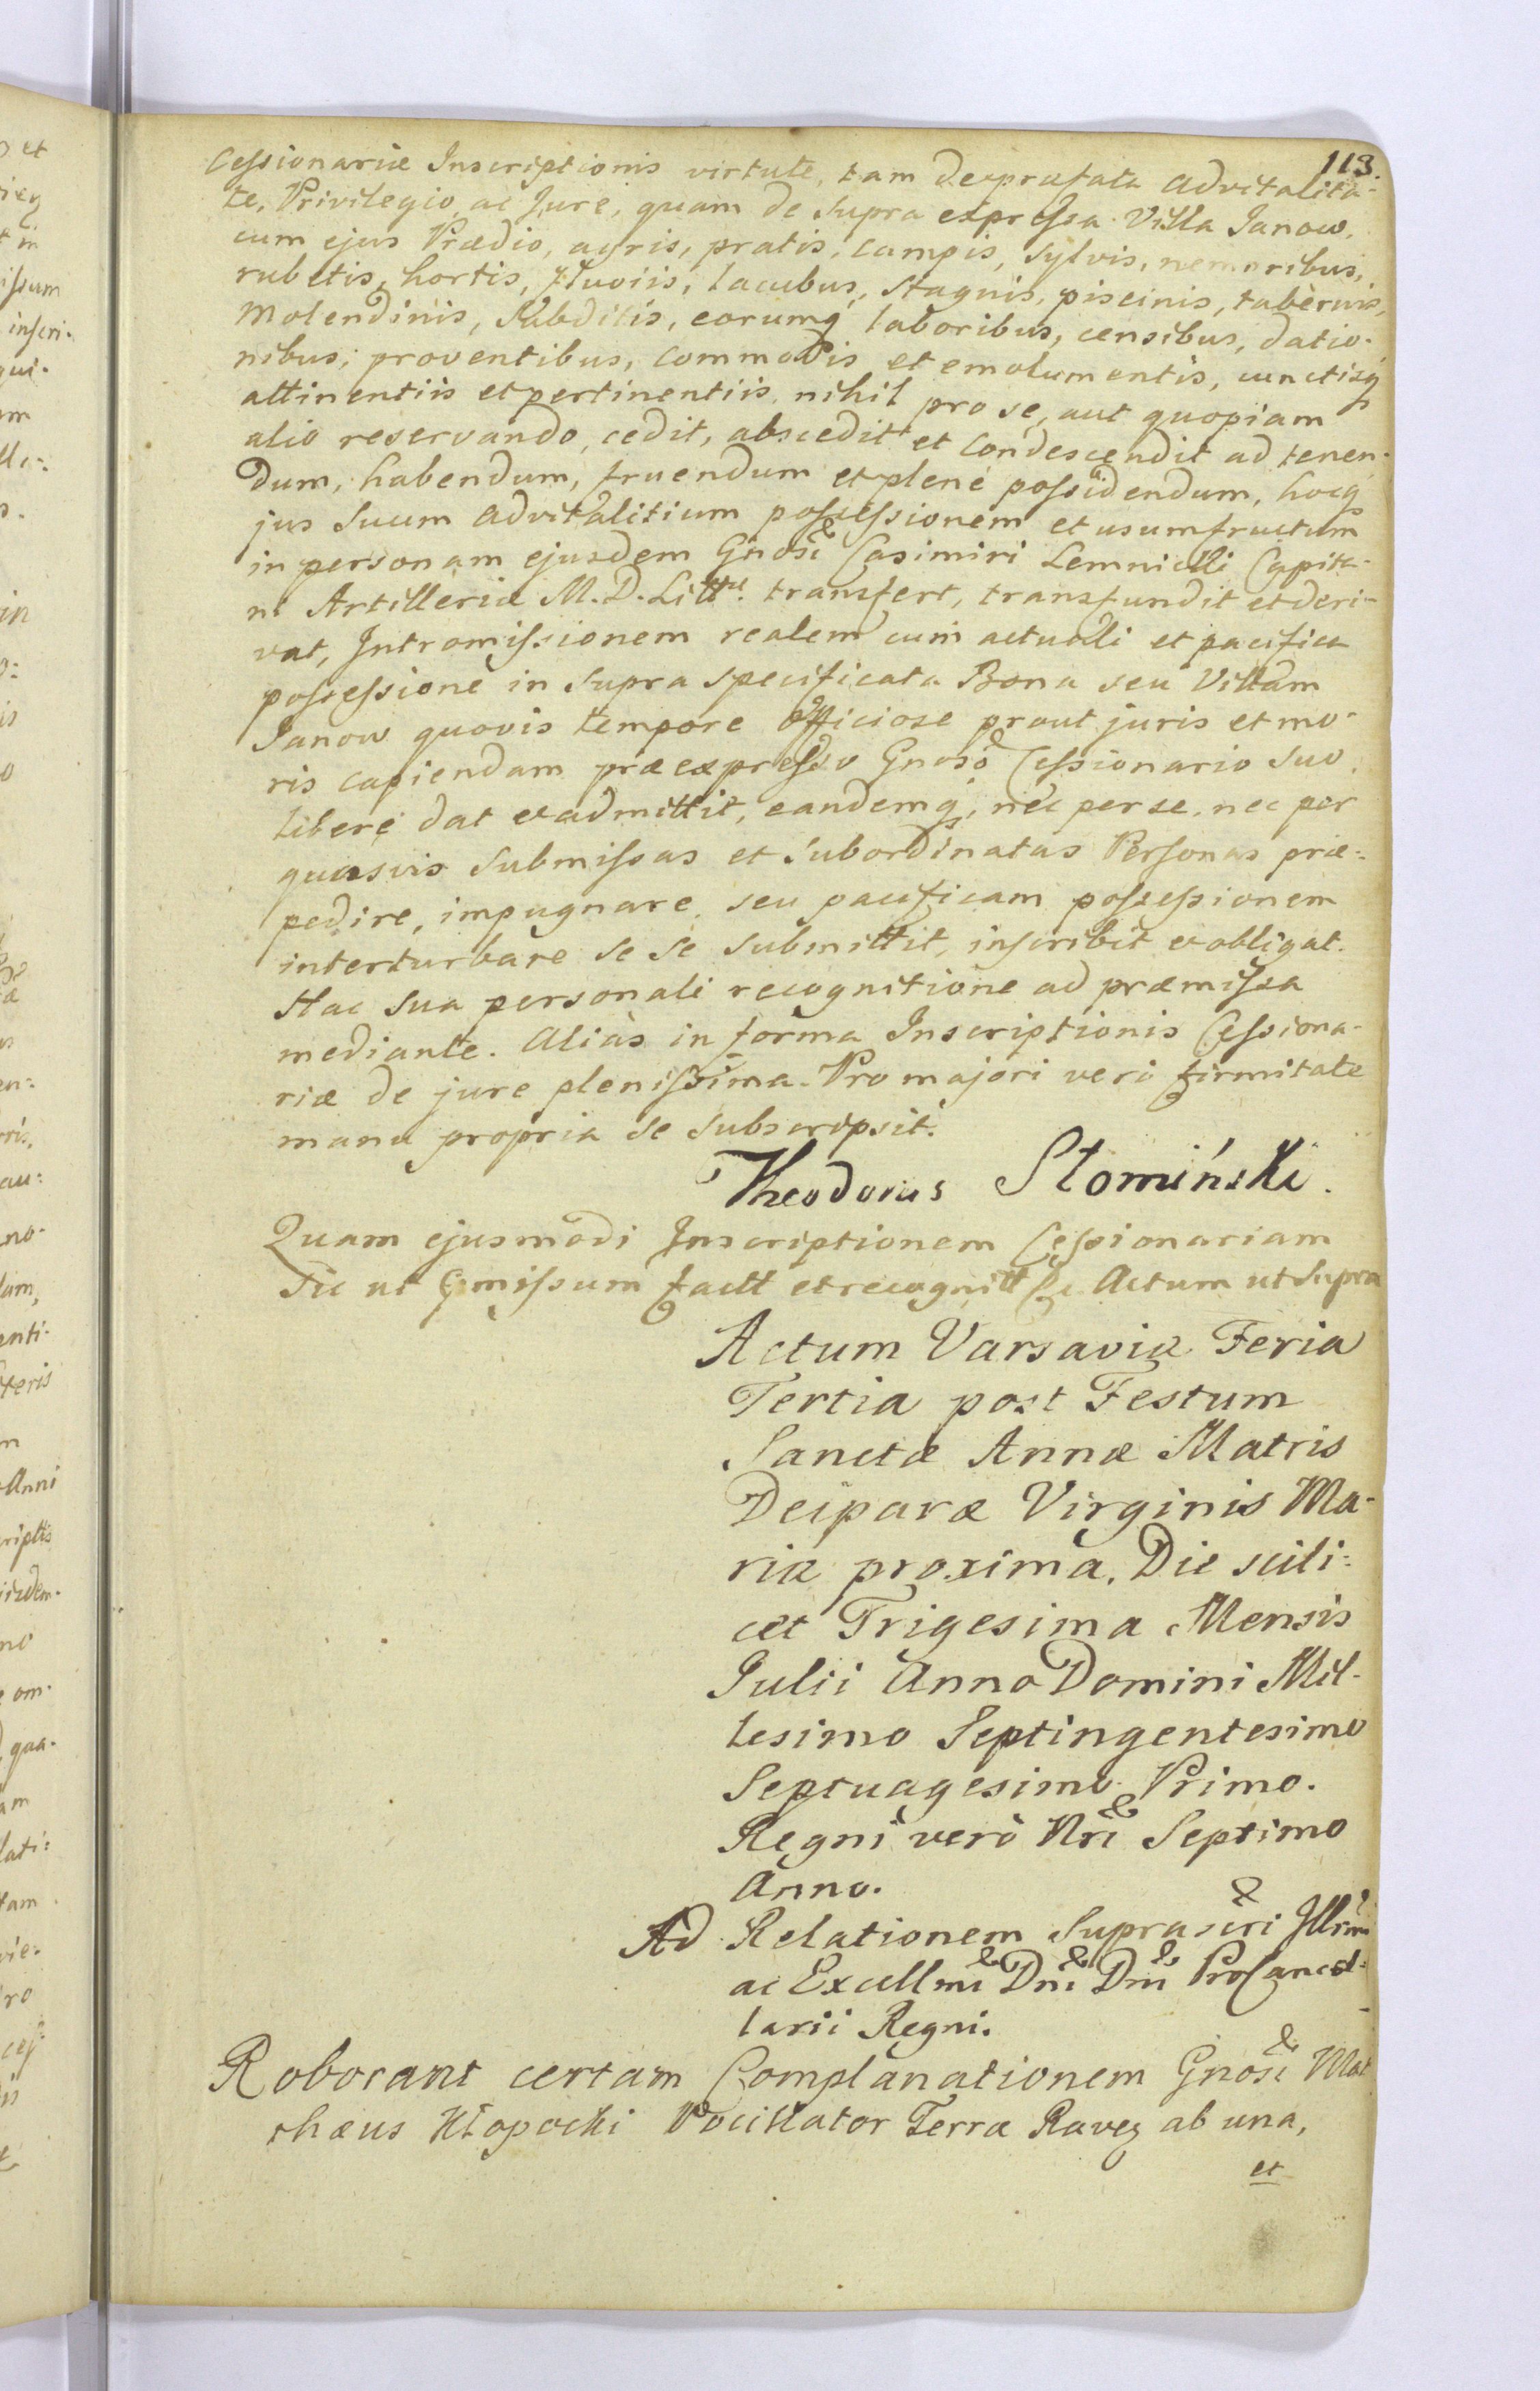 113.
Cessionariæ Inscriptionis virtute, tam de præfata advitalita-
te, Privilegio, ac Jure, quam de supra expressa Villa Janow,
cum ejus Prædio, agris, pratis, campis, sylvis, nemoribus,
rubetis, hortis, fluviis, lacubus, stagnis, piscinis, tabernis,
Molendinis, Subditis, eorumq laboribus, censibus, datio-
nibus, proventibus, commodis et emolumentis, cunctisq
attinentiis et pertinentiis, nihil pro se, aut quopiam
alio reservando, cedit, abscedit et condescendit ad tenen-
dum, habendum, fruendum et plenè possidendum, hocq
jus suum advitalitium possessionem et usumfructum
in personam ejusdem Gnosi Casimiri Lemnicki Capita-
ni Artilleriæ M. D. Littæ. transfert, transfundit et deri-
vat, Intromissionem realem cum actuali et pacifica
possessione in supra specificata Bona seu Villam
Janow quovis tempore officiose prout juris et mo-
ris capiendam præexpresso Gnoso Cessionario suo,
liberè dat et admittit, eandemq, nec per se, nec per
quasvis submissas et subordinatas Personas præ-
pedire, impugnare, seu pacificam possessionem
interturbare se se submittit, inscribit et obligat.
Hac sua personali recognitione ad præmissa
mediante. Aliàs in forma Inscriptionis Cessiona-
riæ de jure plenissima. Pro majori verò firmitate
manu propria se subscripsit.
Theodorus Słomiński.
Quam ejusmodi Inscriptionem Cessionariam
sic ut pmissum factt et recognitt &c Actum ut supra
Actum Varsaviæ Feria
Tertia post Festum
Sanctæ Annæ Matris
Deiparæ Virginis Ma-
riæ proxima, Die scili-
cet Trigesima Mensis
Julii Anno Domini Mil-
lesimo Septingentesimo
Septuagesimo Primo.
Regni verò Nri Septimo
Anno.
Ad Relationem Suprascri Illrmi
ac Excellmi Dni Dni ProCancel-
larii Regni.
Roborant certam Complanationem Gnosi Mat
thæus Kłopocki Vocillator Terræ Raveg ab una,
et